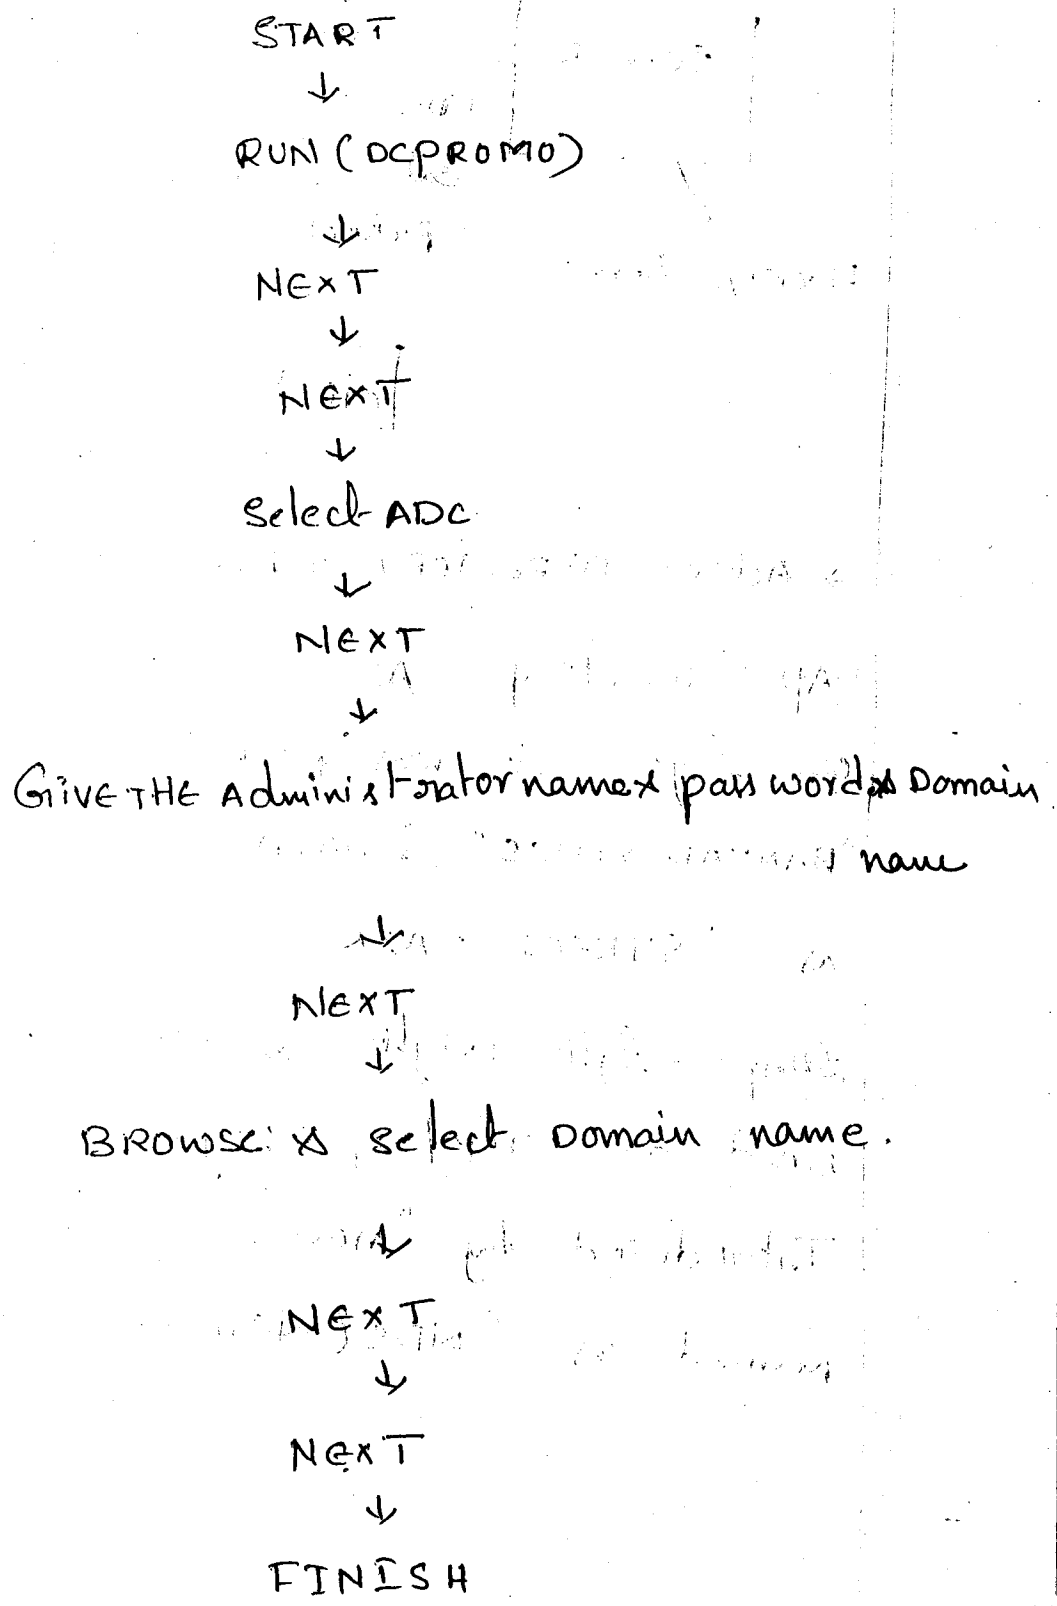 START
↓
RUN (DCPROMO)
↓
NEXT
↓
NEXT
↓
Select ADC
↓
NEXT
↓
GiVE THE Administrator name & password & Domain
name
↓
NEXT
↓
BROWSE & select Domain name.
↓
NEXT
↓
NEXT
↓
FINISH